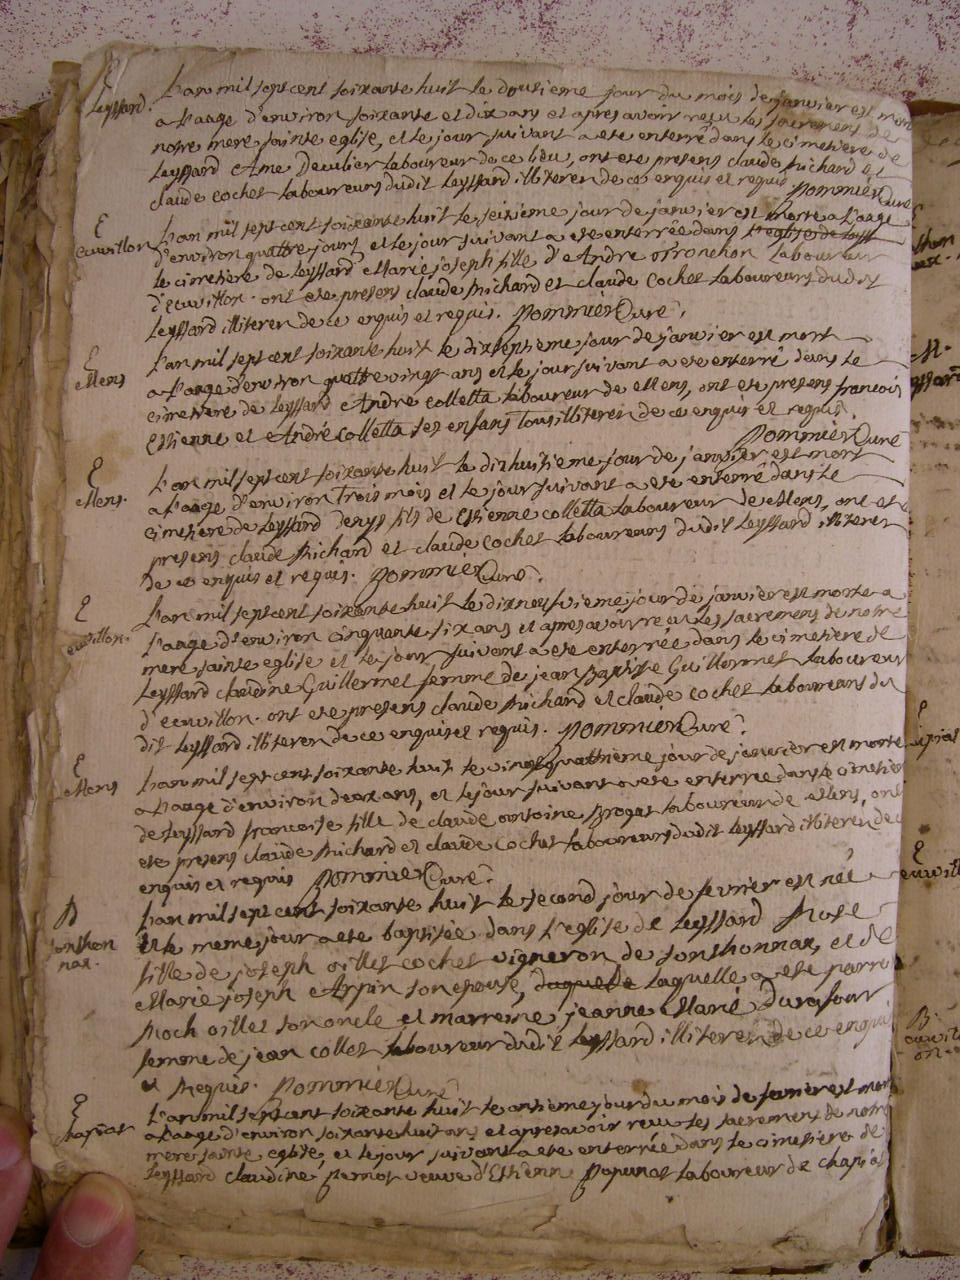 E
Leyssard.
L'an mil sept cent soixante huit le dousieme jour du mois de janvier est mort
a l'aage d'environ soixante et dix ans et apres avoir reçu les sacremens de
notre mere sainte eglise, et le jour suivant a ete enterré dans le cimetiere de
Leyssard Ame laboureur de ce lieu, ont ete presens claude Richard et
claude cochet laboureurs dudit Leyssard illiteres de ce enquis et requis Pommier Curé
E
L'an mil sept cent soixante huit le seisieme jour de janvier est morte a l'aage
d'environ quattre jours, et le jour suivant a ete enterrée dans l'eglise de Leyss
le cimetiere de Leyssard Marie joseph fille d'Andre Tronchon Laboureur
d'euvillon. ont ete presens claude Richard et claude Cochet laboureurs dudit
Leyssard illiteres de ce enquis et requis. Pommier Curé.
E
Mens
L'an mil sept cent soixante huit le dixseptieme jour de janvier est mort
a l'aage d'environ quattre vingt ans et le jour suivant a ete enterré dans le
cimetiere de Leyssard Andre colletta laboureur de Mens, ont ete presens francois
Estienne et André Colletta ses enfans tous illiteres de ce enquis et requis.
Pommier Curé
E
Mens.
L'an mil sept cent soixante huit le dixhuitieme jour de janvier est mort
a l'aage d'environ trois mois et le jour suivant a ete enterré dans le
cimetiere de Leyssard denys fils de Estienne colletta laboureur de Mens, ont ete
presens claude Richard et claude cochet laboureurs dudit Leyssard illiteres
de ce enquis et requis. Pommier Curé.
E
euvillon.
L'an mil sept cent soixante huit le dixneufvieme jour de janvier est morte a
l'aage d'environ cinquante six ans et apres avoir reçu les sacremens de notre
mere sainte eglise et le jour suivant a ete enterrée dans le cimetiere de
Leyssard claudine Guillermet femme de jean Baptiste Guillermet laboureur
d'euvillon. ont ete presens claude Richard et claude cochet laboureurs du
dit Leyssard illiteres de ce enquis et requis. Pommier Curé.
E
Mens
L'an mil sept cent soixante huit le vingtquatrieme jour de janvier est morte
a l'aage d'environ deux ans, et le jour suivant a ete enterrée dans le cimetiere
de Leyssard francoise fille de claude antoine laboureur de Mens, ont
ete presens claude Richard et claude Cochet laboureurs dudit Leyssard illiteres de ce
enquis et requis Pommier Curé.
B
sonthon
nax.
L'an mil sept cent soixante huit le second jour de fevrier est née
et le meme jour a ete baptisée dans l'eglise de Leyssard Rose
fille de joseph oillet cochet vigneron de sonthonnax, et de
Marie joseph Arpin son epouse, daquelle laquelle a ete parrein
Roch oillet son oncle et marreine jeanne Marie
femme de jean collet laboureur dudit Leyssard illiteres de ce enquis
et Requis. Pommier Curé
E
chapiat
L'an mil sept cent soixante huit le onsieme jour du mois de est morte
a l'aage d'environ soixante huit ans et apres avoir reçu les sacremens de notre
mere sainte eglise, et le jour suivant a ete enterrée dans le cimetiere de
Leyssard claudine pernot veuve d'Estienne laboureur de chapiat